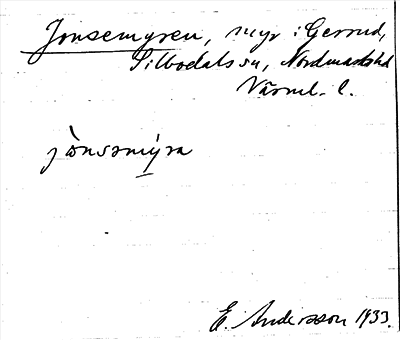 Jonsemyren, myr i Gerrud,
Silbodals sn, Nordmarks hd
Värml. l.
jònsəmýra
E. Andersson 1933.